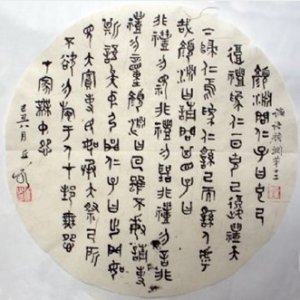 論語顏淵第十二
顏淵問仁子曰克己
復禮為仁一日克己復禮天
下歸仁焉為仁由己而由人乎
哉顏淵曰請問其目子曰
非禮勿視非禮勿聽非禮勿言
非禮勿動顏淵曰回雖不敏請事
斯語矣仲弓問仁子曰出門如
見大賓使民如承大祭己所
不欲勿施於人在邦無怨
在家無怨
己丑八月